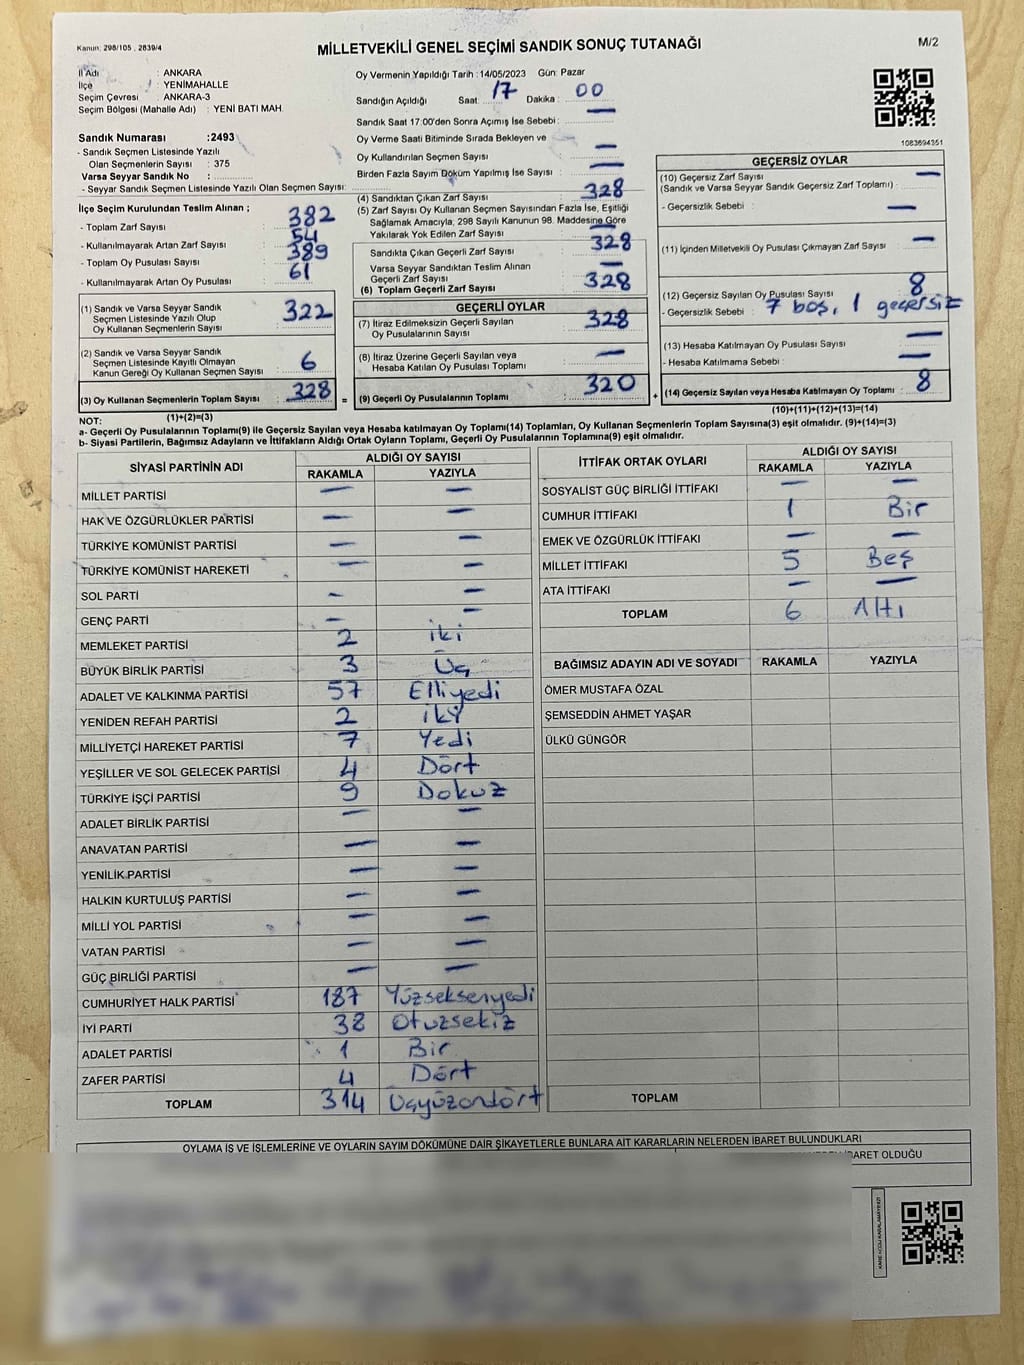 Kanun: 298/105 , 2839/4
MİLLETVEKİLİ GENEL SEÇİMİ SANDIK SONUÇ TUTANAĞI
M/2
İl Adı : ANKARA
İlçe : YENİMAHALLE
Seçim Çevresi : ANKARA-3
Seçim Bölgesi (Mahalle Adı) : YENİ BATI MAH.
Sandık Numarası :2493
- Sandık Seçmen Listesinde Yazılı
Olan Seçmenlerin Sayısı : 375
Varsa Seyyar Sandık No :
- Seyyar Sandık Seçmen Listesinde Yazılı Olan Seçmen Sayısı:
İlçe Seçim Kurulundan Teslim Alınan ;
- Toplam Zarf Sayısı : 382
- Kullanılmayarak Artan Zarf Sayısı : 54
- Toplam Oy Pusulası Sayısı : 389
- Kullanılmayarak Artan Oy Pusulası : 61
(1) Sandık ve Varsa Seyyar Sandık
Seçmen Listesinde Yazılı Olup
Oy Kullanan Seçmenlerin Sayısı : 322
(2) Sandık ve Varsa Seyyar Sandık
Seçmen Listesinde Kayıtlı Olmayan
Kanun Gereği Oy Kullanan Seçmen Sayısı : 6
(3) Oy Kullanan Seçmenlerin Toplam Sayısı : 328
(1)+(2)=(3)
Oy Vermenin Yapıldığı Tarih :14/05/2023 Gün: Pazar
Sandığın Açıldığı Saat: 17 Dakika : 00
Sandık Saat 17:00'den Sonra Açımış İse Sebebi : —
Oy Verme Saati Bitiminde Sırada Bekleyen ve
Oy Kullandırılan Seçmen Sayısı : —
Birden Fazla Sayım Döküm Yapılmış İse Sayısı : —
(4) Sandıktan Çıkan Zarf Sayısı : 328
(5) Zarf Sayısı Oy Kullanan Seçmen Sayısından Fazla İse, Eşitliği
Sağlamak Amacıyla, 298 Sayılı Kanunun 98. Maddesine Göre
Yakılarak Yok Edilen Zarf Sayısı : —
Sandıkta Çıkan Geçerli Zarf Sayısı : 328
Varsa Seyyar Sandıktan Teslim Alınan
Geçerli Zarf Sayısı : —
(6) Toplam Geçerli Zarf Sayısı : 328
GEÇERLİ OYLAR
(7) İtiraz Edilmeksizin Geçerli Sayılan
Oy Pusulalarının Sayısı : 328
(8) İtiraz Üzerine Geçerli Sayılan veya
Hesaba Katılan Oy Pusulası Toplamı : —
= (9) Geçerli Oy Pusulalarının Toplamı : 320 +
1083694351
GEÇERSİZ OYLAR
(10) Geçersiz Zarf Sayısı
(Sandık ve Varsa Seyyar Sandık Geçersiz Zarf Toplamı) : —
- Geçersizlik Sebebi : —
(11) İçinden Milletvekili Oy Pusulası Çıkmayan Zarf Sayısı : —
(12) Geçersiz Sayılan Oy Pusulası Sayısı : 8
- Geçersizlik Sebebi : 7 boş, 1 geçersiz
(13) Hesaba Katılmayan Oy Pusulası Sayısı : —
- Hesaba Katılmama Sebebi : —
(14) Geçersiz Sayılan veya Hesaba Katılmayan Oy Toplamı : 8
(10)+(11)+(12)+(13)=(14)
NOT:
a- Geçerli Oy Pusulalarının Toplamı(9) ile Geçersiz Sayılan veya Hesaba katılmayan Oy Toplamı(14) Toplamları, Oy Kullanan Seçmenlerin Toplam Sayısına(3) eşit olmalıdır. (9)+(14)=(3)
b- Siyasi Partilerin, Bağımsız Adayların ve İttifakların Aldığı Ortak Oyların Toplamı, Geçerli Oy Pusulalarının Toplamına(9) eşit olmalıdır.
SİYASİ PARTİNİN ADI ALDIĞI OY SAYISI
RAKAMLA YAZIYLA
MİLLET PARTİSİ — —
HAK VE ÖZGÜRLÜKLER PARTİSİ — —
TÜRKİYE KOMÜNİST PARTİSİ — —
TÜRKİYE KOMÜNİST HAREKETİ — —
SOL PARTİ — —
GENÇ PARTİ — —
MEMLEKET PARTİSİ 2 iki
BÜYÜK BİRLİK PARTİSİ 3 Üç
ADALET VE KALKINMA PARTİSİ 57 Elliyedi
YENİDEN REFAH PARTİSİ 2 iki
MİLLİYETÇİ HAREKET PARTİSİ 7 Yedi
YEŞİLLER VE SOL GELECEK PARTİSİ 4 Dört
TÜRKİYE İŞÇİ PARTİSİ 9 Dokuz
ADALET BİRLİK PARTİSİ — —
ANAVATAN PARTİSİ — —
YENİLİK PARTİSİ — —
HALKIN KURTULUŞ PARTİSİ — —
MİLLİ YOL PARTİSİ — —
VATAN PARTİSİ — —
GÜÇ BİRLİĞİ PARTİSİ — —
CUMHURİYET HALK PARTİSİ 187 Yüzseksenyedi
İYİ PARTİ 38 Otuzsekiz
ADALET PARTİSİ 1 Bir
ZAFER PARTİSİ 4 Dört
TOPLAM 314 Üçyüzondört
İTTİFAK ORTAK OYLARI ALDIĞI OY SAYISI
RAKAMLA YAZIYLA
SOSYALİST GÜÇ BİRLİĞİ İTTİFAKI — —
CUMHUR İTTİFAKI 1 Bir
EMEK VE ÖZGÜRLÜK İTTİFAKI — —
MİLLET İTTİFAKI 5 Beş
ATA İTTİFAKI — —
TOPLAM 6 Altı
BAĞIMSIZ ADAYIN ADI VE SOYADI RAKAMLA YAZIYLA
ÖMER MUSTAFA ÖZAL
ŞEMSEDDİN AHMET YAŞAR
ÜLKÜ GÜNGÖR
TOPLAM
OYLAMA İŞ VE İŞLEMLERİNE VE OYLARIN SAYIM DÖKÜMÜNE DAİR ŞİKAYETLERLE BUNLARA AİT KARARLARIN NELERDEN İBARET BULUNDUKLARI
İBARET OLDUĞU